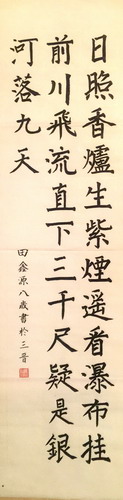 日照香爐生紫煙遥看瀑布挂
前川飛流直下三千尺疑是銀
河落九天
田鑫源八歲書於三晉